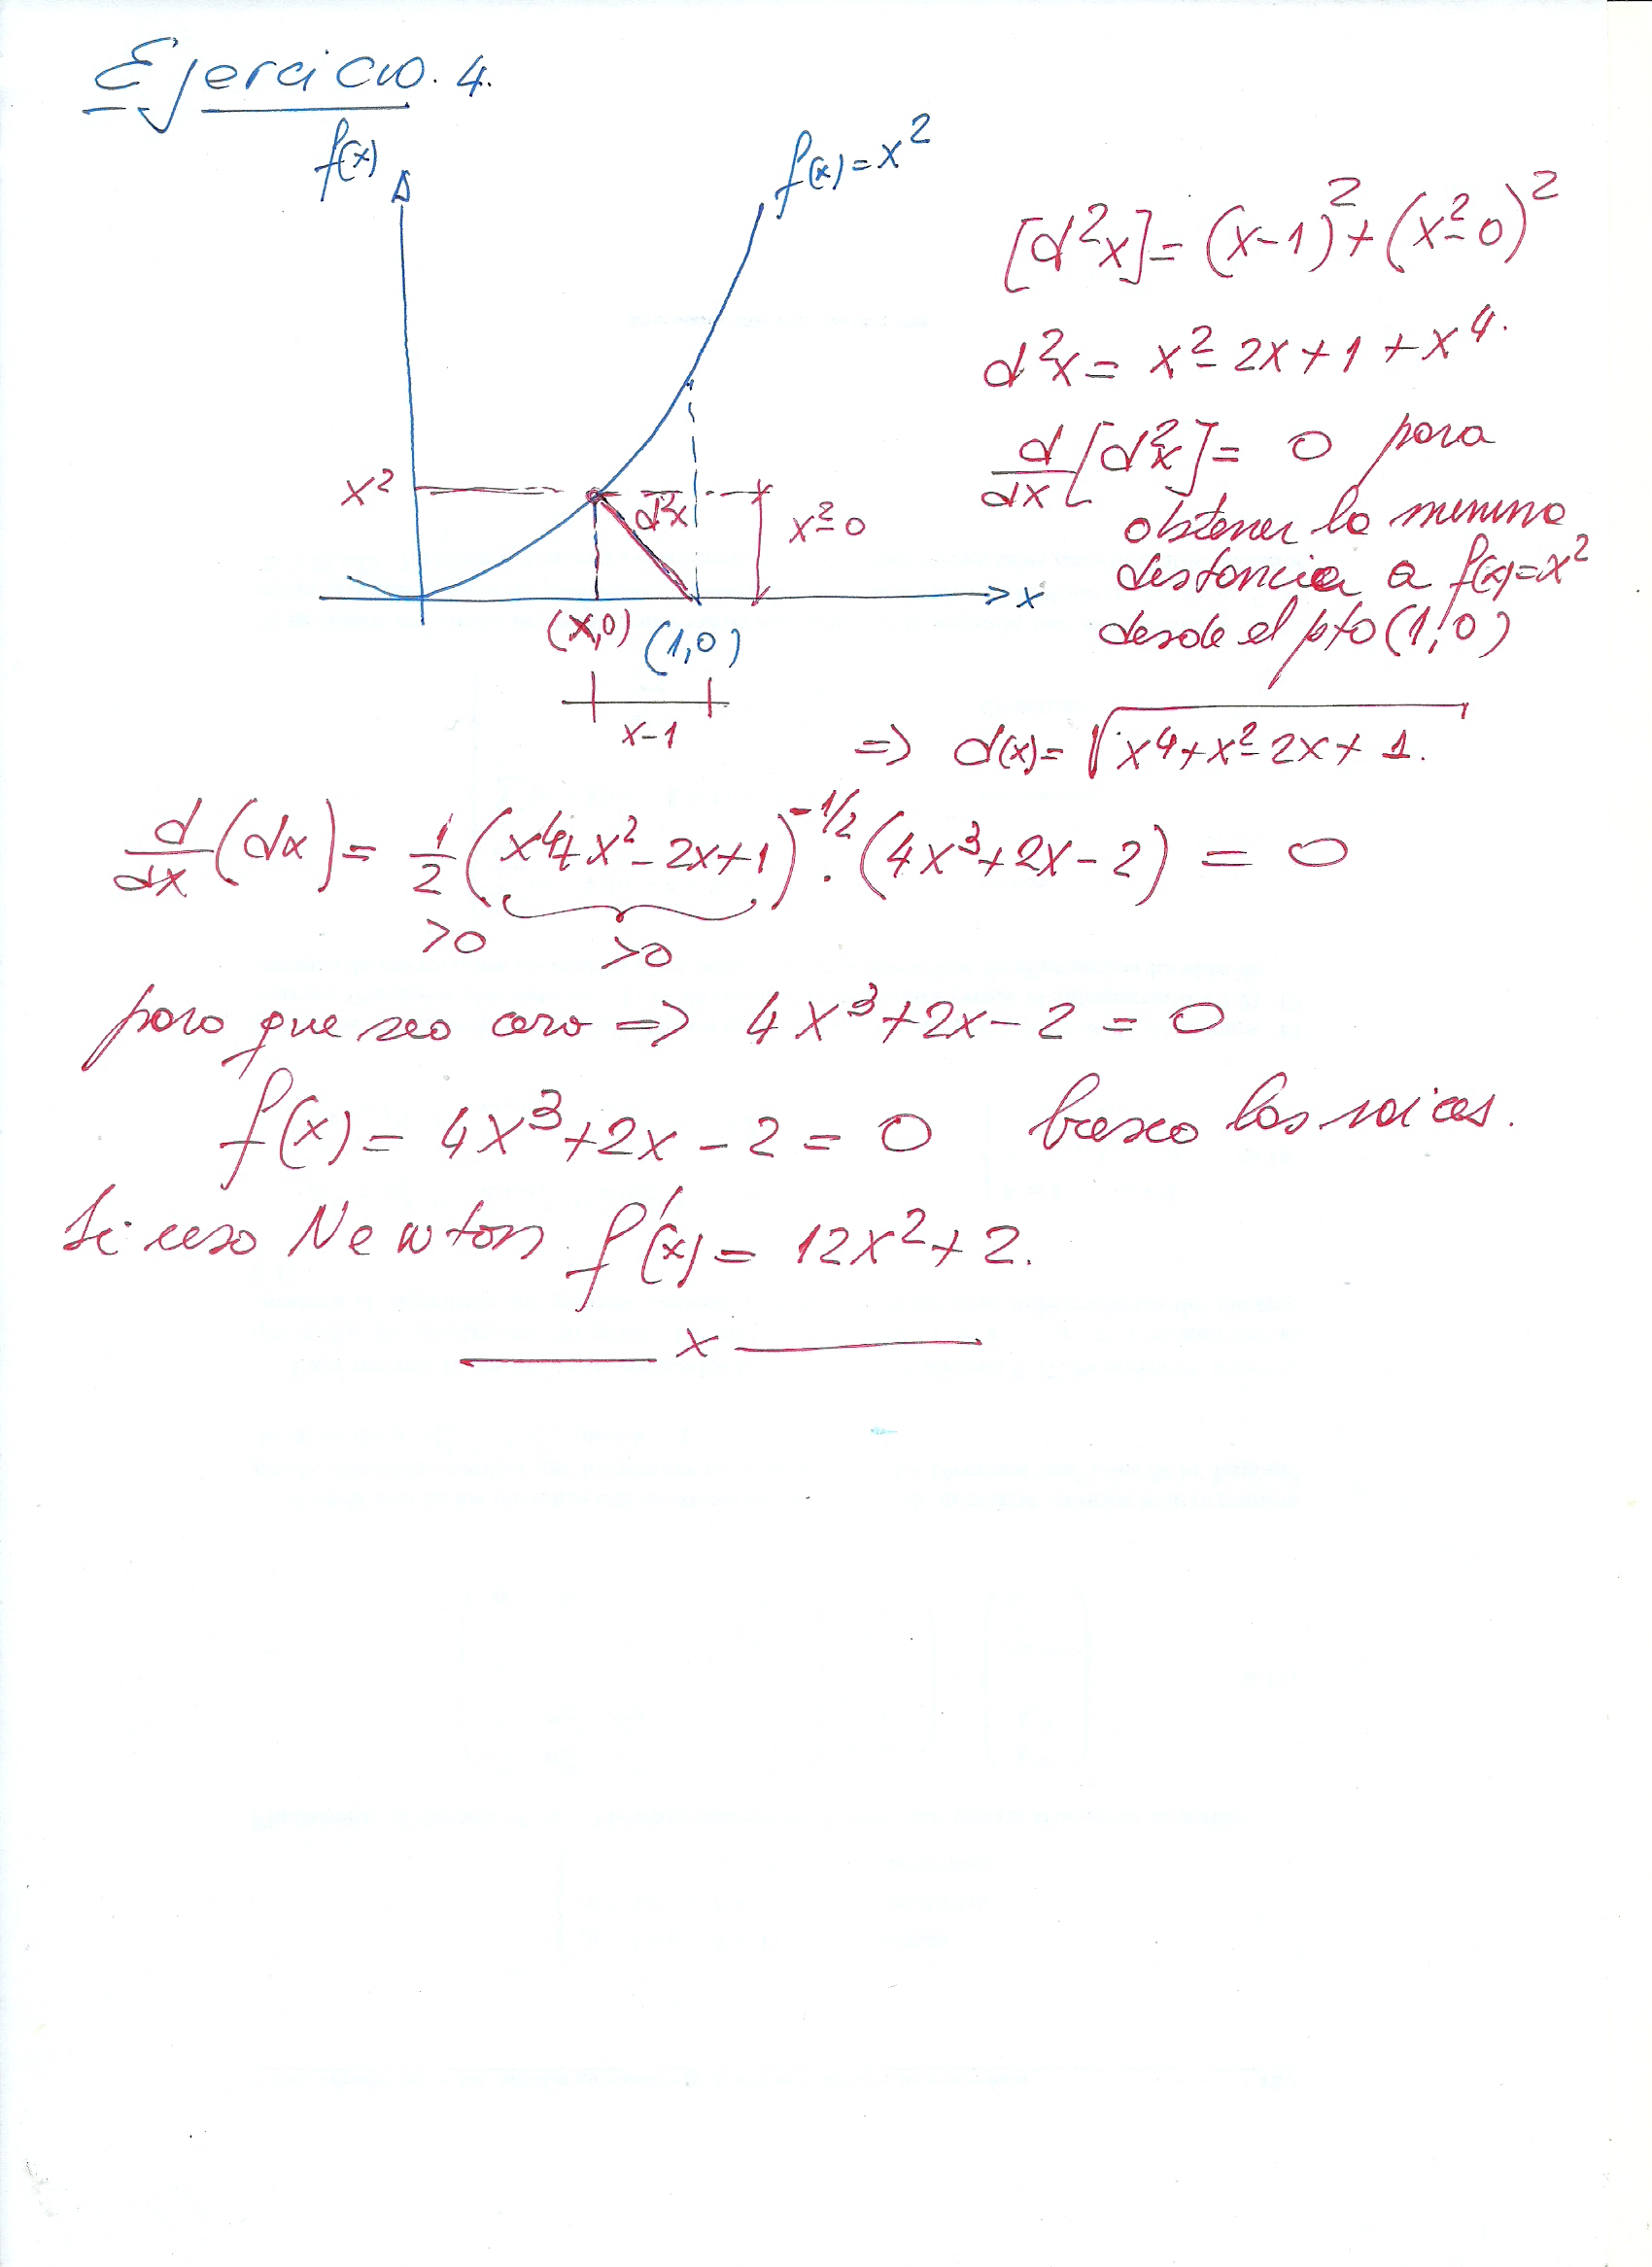 Ejercicio. 4.
f(x)
f(x) = x²
[d²x] = (x-1)² + (x²-0)²
d²x = x² - 2x + 1 + x⁴.
d/dx [d²x] = 0 para
obtener la minima
distancia a f(x)=x²
desde el pto (1,0)
x²
d²x
x²-0
x
(x,0) (1,0)
x-1
=> d(x) = √(x⁴+x²-2x+1.)
d/dx (dx) = 1/2 (x⁴+x²-2x+1)^(-1/2) · (4x³+2x-2) = 0
>0 >0
para que sea cero => 4x³+2x-2 = 0
f(x) = 4x³+2x-2 = 0 busco las raices.
Si uso Newton f'(x) = 12x²+2.
x